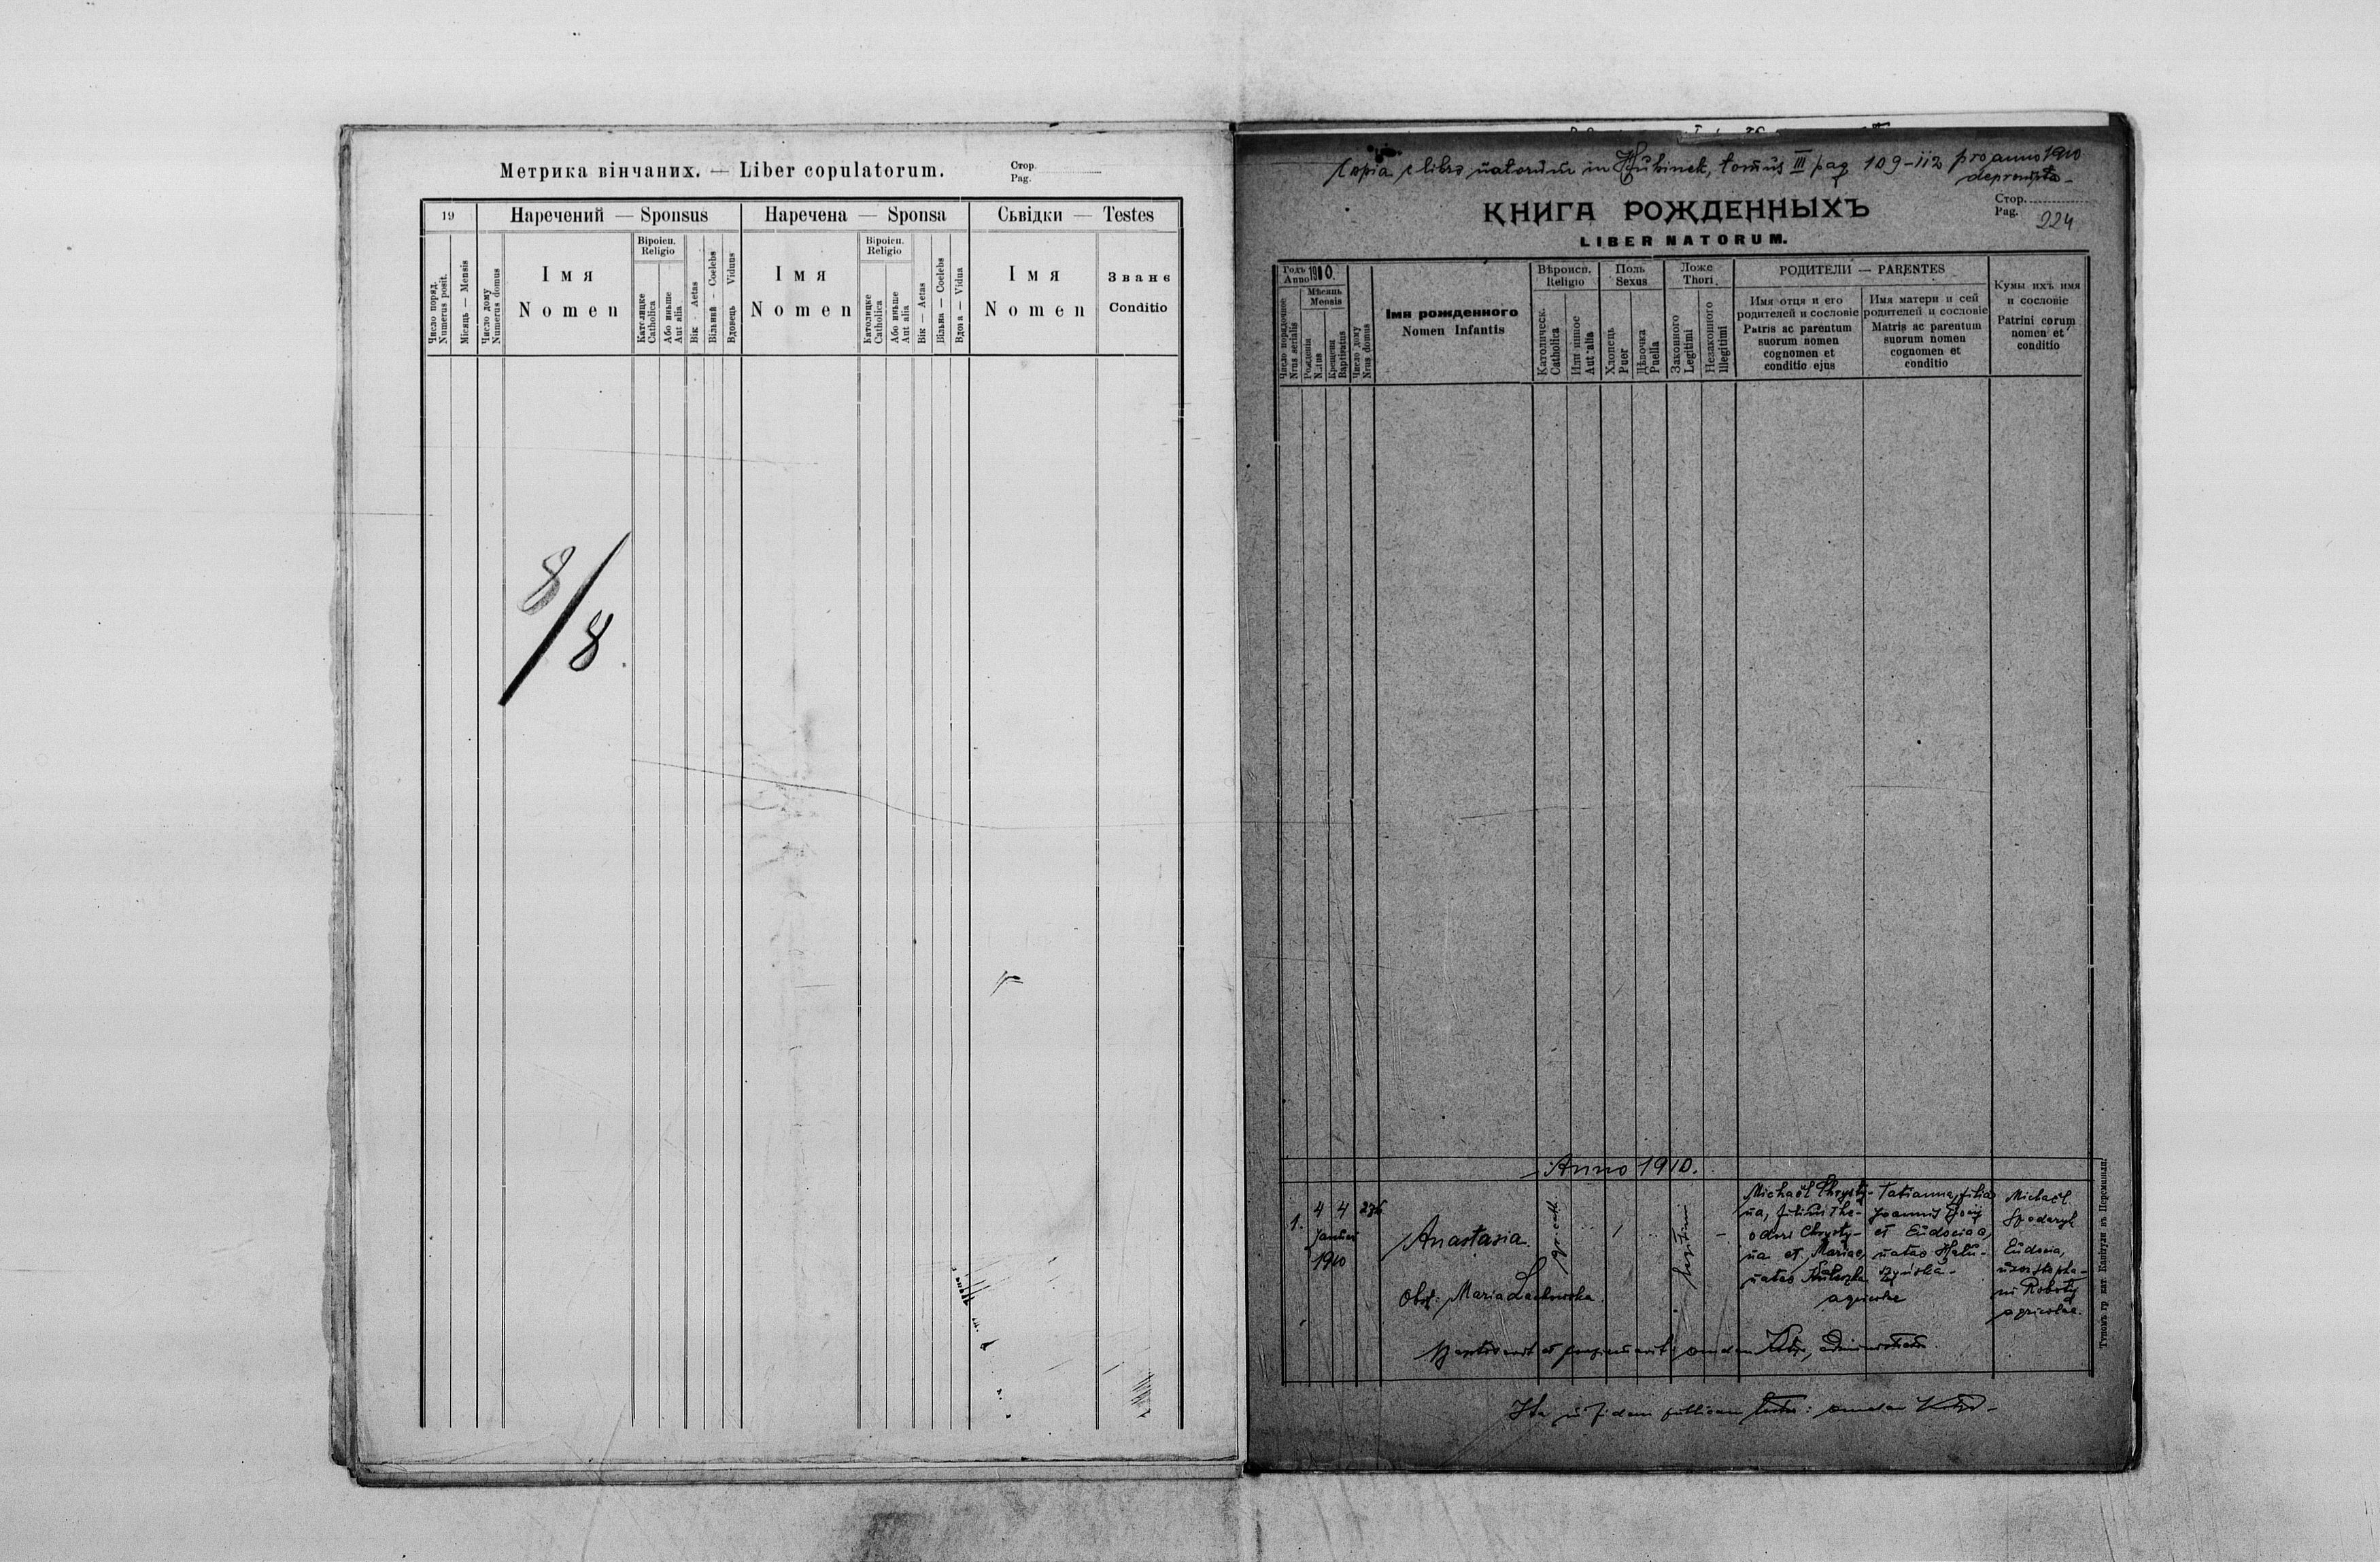 Метрика вінчаних. — Liber copulatorum.
Стор.
Pag.
19
Наречений — Sponsus
Наречена — Sponsa
Сьвідки — Testes
Число поряд.
Numerus posit.
Місяць — Mensis
Число дому
Numerus domus
Імя
Nomen
Віроісп.
Religio
Католицке
Catholica
Або иньше
Aut alia
Вік - Aetas
Вільний - Coelebs
Вдовець Viduus
Імя
Nomen
Віроісп.
Religio
Католицке
Catholica
Або иньше
Aut alia
Вік — Aetas
Вільна — Coelebs
Вдова — Vidua
Імя
Nomen
Званє
Conditio
8/8
Copia e libro natorum in Hubinek, tomus III pag 109-112 pro anno 1910
deprompta -
КНИГА РОЖДЕННЫХЪ
LIBER NATORUM.
Стор.
Pag.
224
Годъ
Anno 1910.
Мѣсяць
Mensis
Число порядочное
Nrus serialis
Рожденія
Natus
Крещенія
Baptisatus
Число дому
Nrus domus
Імя рожденного
Nomen Infantis
Вѣроисп.
Religio
Католическ.
Catholica
Или инное
Aut alia
Поль
Sexus
Хлопець
Puer
Дѣвочка
Puella
Ложе
Thori
Законного
Legitimi
Незаконного
Illegitimi
РОДИТЕЛИ — PARENTES
Имя отця и его
родителей и сословіе
Patris ac parentum
suorum nomen
cognomen et
conditio ejus
Имя матери и сей
родителей и сословіе
Matris ac parentum
suorum nomen
cognomen et
conditio
Кумы ихъ имя
и сословіе
Patrini eorum
nomen et
conditio
Anno 1910.
1.
4 4 236
Januar
1910
Anastasia
gr. cath.
legitimi
Obst: Maria Lachowska.
Michaël Chrysty-
na, filius The-
odori Chrysty-
na et Mariae,
natae
Tatianna, filia
Joannis
et Eudociae,
natae
agricolae
Michaël
Eudocia,
uxor Stepha-
ni Roboty
agricolae.
Baptisavit et
administrator
Ita in fidem publicam
Типомъ гр кат. Капітулы въ Перемышли.